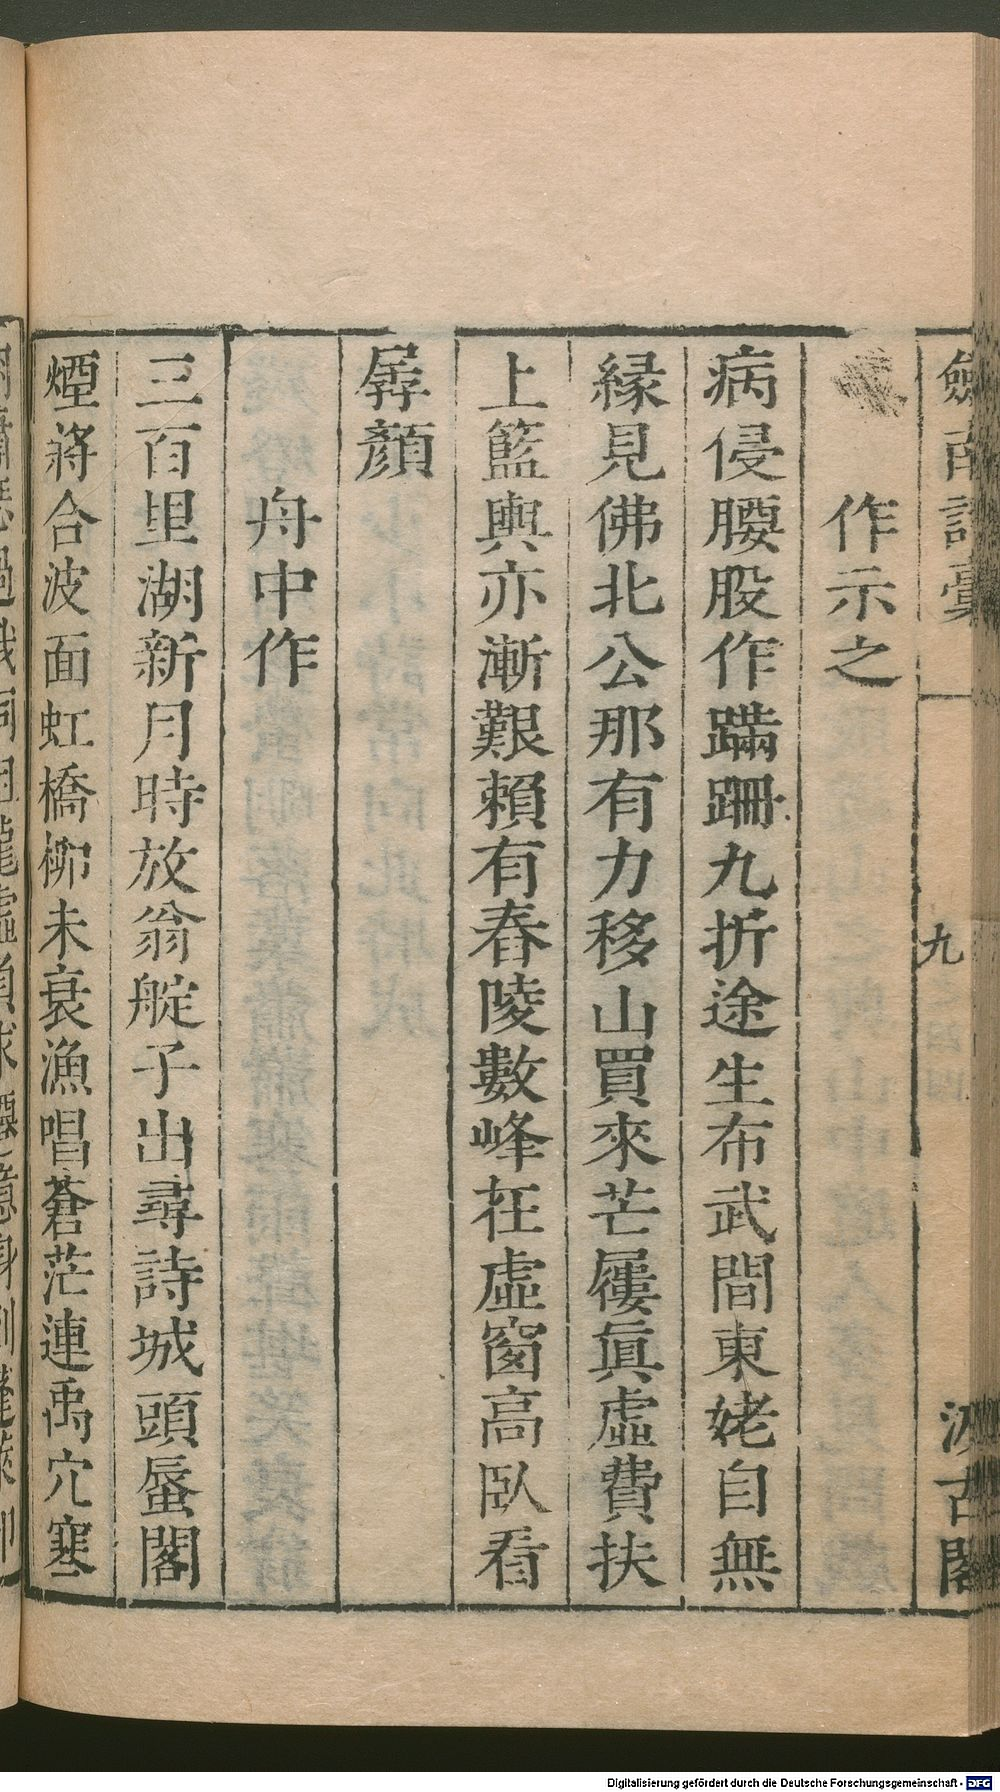 劍南詩稾
九
汲古閣
作示之
病侵腰股作蹣跚九折途生布武間東姥自無
緣見佛北公那有力移山買來芒屨眞虛費扶
上籃輿亦漸艱賴有舂陵數峰在虛窗高臥看
孱顏
舟中作
三百里湖新月時放翁艇子出尋詩城頭蜃閣
煙將合波面虹橋柳未衰漁唱蒼茫連禹穴寒
Digitalisierung gefördert durch die Deutsche Forschungsgemeinschaft - DFG